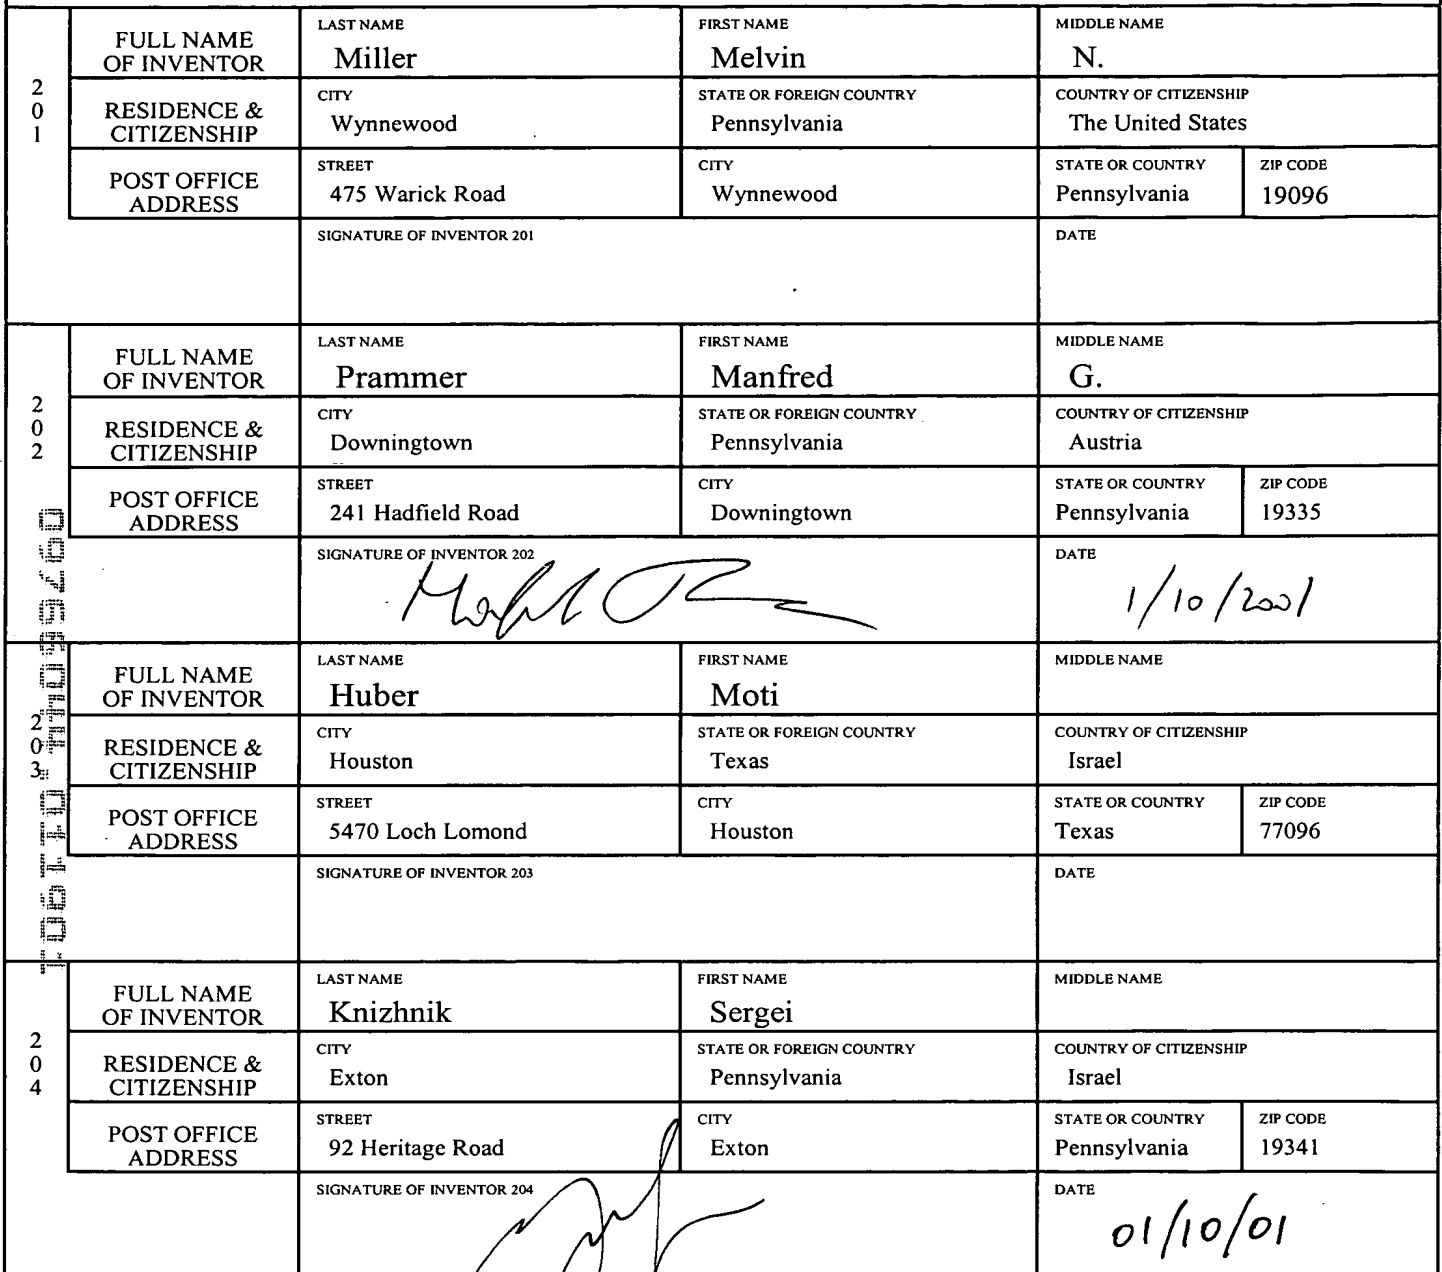 2 0 1
FULL NAME OF INVENTOR
LAST NAME
Miller
FIRST NAME
Melvin
MIDDLE NAME
N.
RESIDENCE & CITIZENSHIP
CITY
Wynnewood
STATE OR FOREIGN COUNTRY
Pennsylvania
COUNTRY OF CITIZENSHIP
The United States
POST OFFICE ADDRESS
STREET
475 Warick Road
CITY
Wynnewood
STATE OR COUNTRY
Pennsylvania
ZIP CODE
19096
SIGNATURE OF INVENTOR 201
DATE
2 0 2
FULL NAME OF INVENTOR
LAST NAME
Prammer
FIRST NAME
Manfred
MIDDLE NAME
G.
RESIDENCE & CITIZENSHIP
CITY
Downingtown
STATE OR FOREIGN COUNTRY
Pennsylvania
COUNTRY OF CITIZENSHIP
Austria
POST OFFICE ADDRESS
STREET
241 Hadfield Road
CITY
Downingtown
STATE OR COUNTRY
Pennsylvania
ZIP CODE
19335
SIGNATURE OF INVENTOR 202
DATE
1/10/2001
2 0 3
FULL NAME OF INVENTOR
LAST NAME
Huber
FIRST NAME
Moti
MIDDLE NAME
RESIDENCE & CITIZENSHIP
CITY
Houston
STATE OR FOREIGN COUNTRY
Texas
COUNTRY OF CITIZENSHIP
Israel
POST OFFICE ADDRESS
STREET
5470 Loch Lomond
CITY
Houston
STATE OR COUNTRY
Texas
ZIP CODE
77096
SIGNATURE OF INVENTOR 203
DATE
2 0 4
FULL NAME OF INVENTOR
LAST NAME
Knizhnik
FIRST NAME
Sergei
MIDDLE NAME
RESIDENCE & CITIZENSHIP
CITY
Exton
STATE OR FOREIGN COUNTRY
Pennsylvania
COUNTRY OF CITIZENSHIP
Israel
POST OFFICE ADDRESS
STREET
92 Heritage Road
CITY
Exton
STATE OR COUNTRY
Pennsylvania
ZIP CODE
19341
SIGNATURE OF INVENTOR 204
DATE
01/10/01